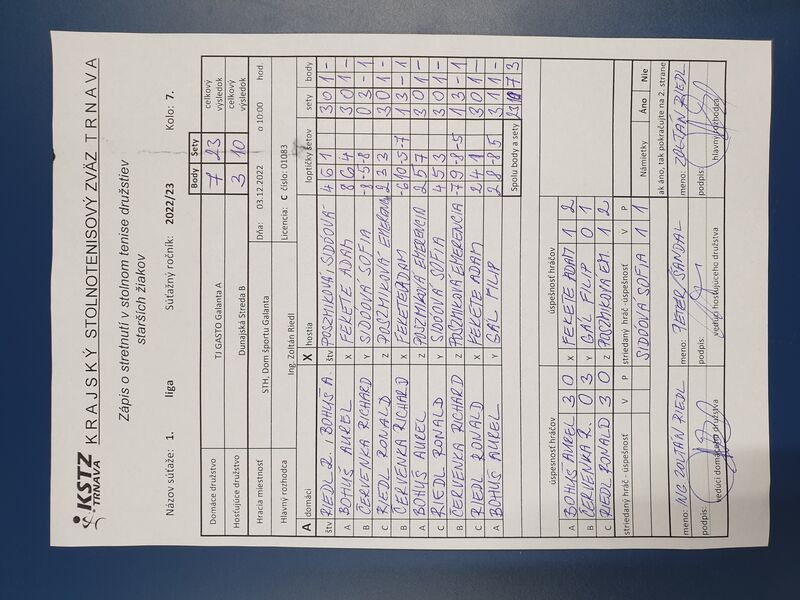 KSTZ
TRNAVA
KRAJSKÝ STOLNOTENISOVÝ ZVÄZ TRNAVA
Zápis o stretnutí v stolnom tenise družstiev
starších žiakov
Názov súťaže: 1. liga Súťažný ročník: 2022/23 Kolo: 7.
Body Sety
Domáce družstvo TJ GASTO Galanta A 7 23 celkový výsledok
Hosťujúce družstvo Dunajská Streda B 3 10 celkový výsledok
Hracia miestnosť STH, Dom športu Galanta Dňa: 03.12.2022 o 10:00 hod.
Hlavný rozhodca Ing. Zoltán Riedl Licencia: C číslo: 01083
A domáci X hostia loptičky setov sety body
štv RIEDL R. , BOHUŠ A. štv POSZMIKOVÁ, SIDÓOVÁ 4 6 1 3 0 1 -
A BOHUŠ AUREL X FEKETE ADAM 8 6 4 3 0 1 -
B ČERVENKA RICHARD Y SIDÓOVÁ SOFIA -8 -5 -8 0 3 - 1
C RIEDL RONALD Z POSZMIKOVÁ 2 3 3 3 0 1 -
B ČERVENKA RICHARD X FEKETE ADAM -6 10 -5 -7 1 3 - 1
A BOHUŠ AUREL Z POSZMIKOVÁ EMERENCIA 2 5 7 3 0 1 -
C RIEDL RONALD Y SIDÓOVÁ SOFIA 4 5 3 3 0 1 -
B ČERVENKA RICHARD Z POSZMIKOVÁ EMERENCIA -7 9 -8 -5 1 3 - 1
C RIEDL RONALD X FEKETE ADAM 2 4 1 3 0 1 -
A BOHUŠ AUREL Y GÁL FILIP 2 8 -8 5 3 1 1 -
Spolu body a sety 23 10 7 3
úspešnosť hráčov úspešnosť hráčov
A BOHUŠ AUREL 3 0 X FEKETE ADAM 1 2
B ČERVENKA R. 0 3 Y GÁL FILIP 0 1
C RIEDL RONALD 3 0 Z POSZMIKOVÁ EM. 1 2
striedaný hráč - úspešnosť V P striedaný hráč - úspešnosť V P
SIDÓOVÁ SOFIA 1 1
Námietky Áno Nie
ak áno, tak pokračujte na 2. strane
meno: ING. ZOLTÁN RIEDL meno: PETER ŠANDAL meno: ZOLTÁN RIEDL
podpis: podpis: podpis:
vedúci domáceho družstva vedúci hosťujúceho družstva hlavný rozhodca